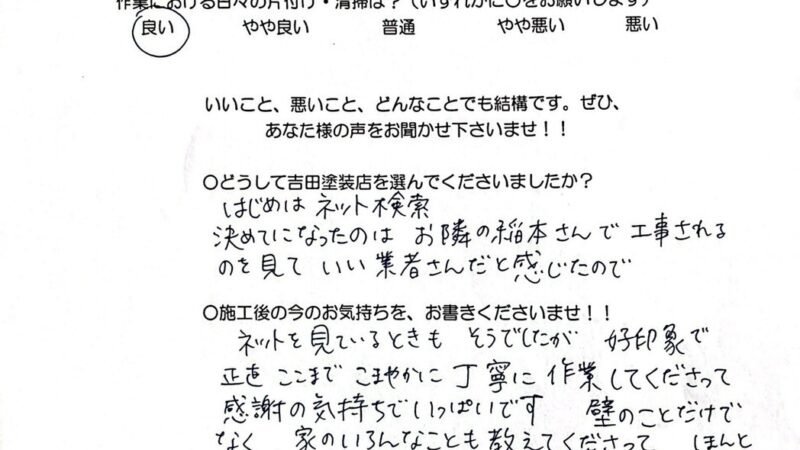 作業における日々の片付け・清掃は？（いずれかに〇をお願いします）
良い やや良い 普通 やや悪い 悪い
いいこと、悪いこと、どんなことでも結構です。ぜひ、
あなた様の声をお聞かせ下さいませ！！
〇どうして吉田塗装店を選んでくださいましたか？
はじめは ネット検索
決めてになったのは お隣の稲本さんで 工事される
のを見て いい業者さんだと感じたので
〇施工後の今のお気持ちを、お書きくださいませ！！
ネットを見ているときも そうでしたが 好印象で
正直 ここまで こまやかに 丁寧に 作業してくださって
感謝の気持ちでいっぱいです 壁のことだけで
なく 家のいろんなことも教えてくださって ほんと